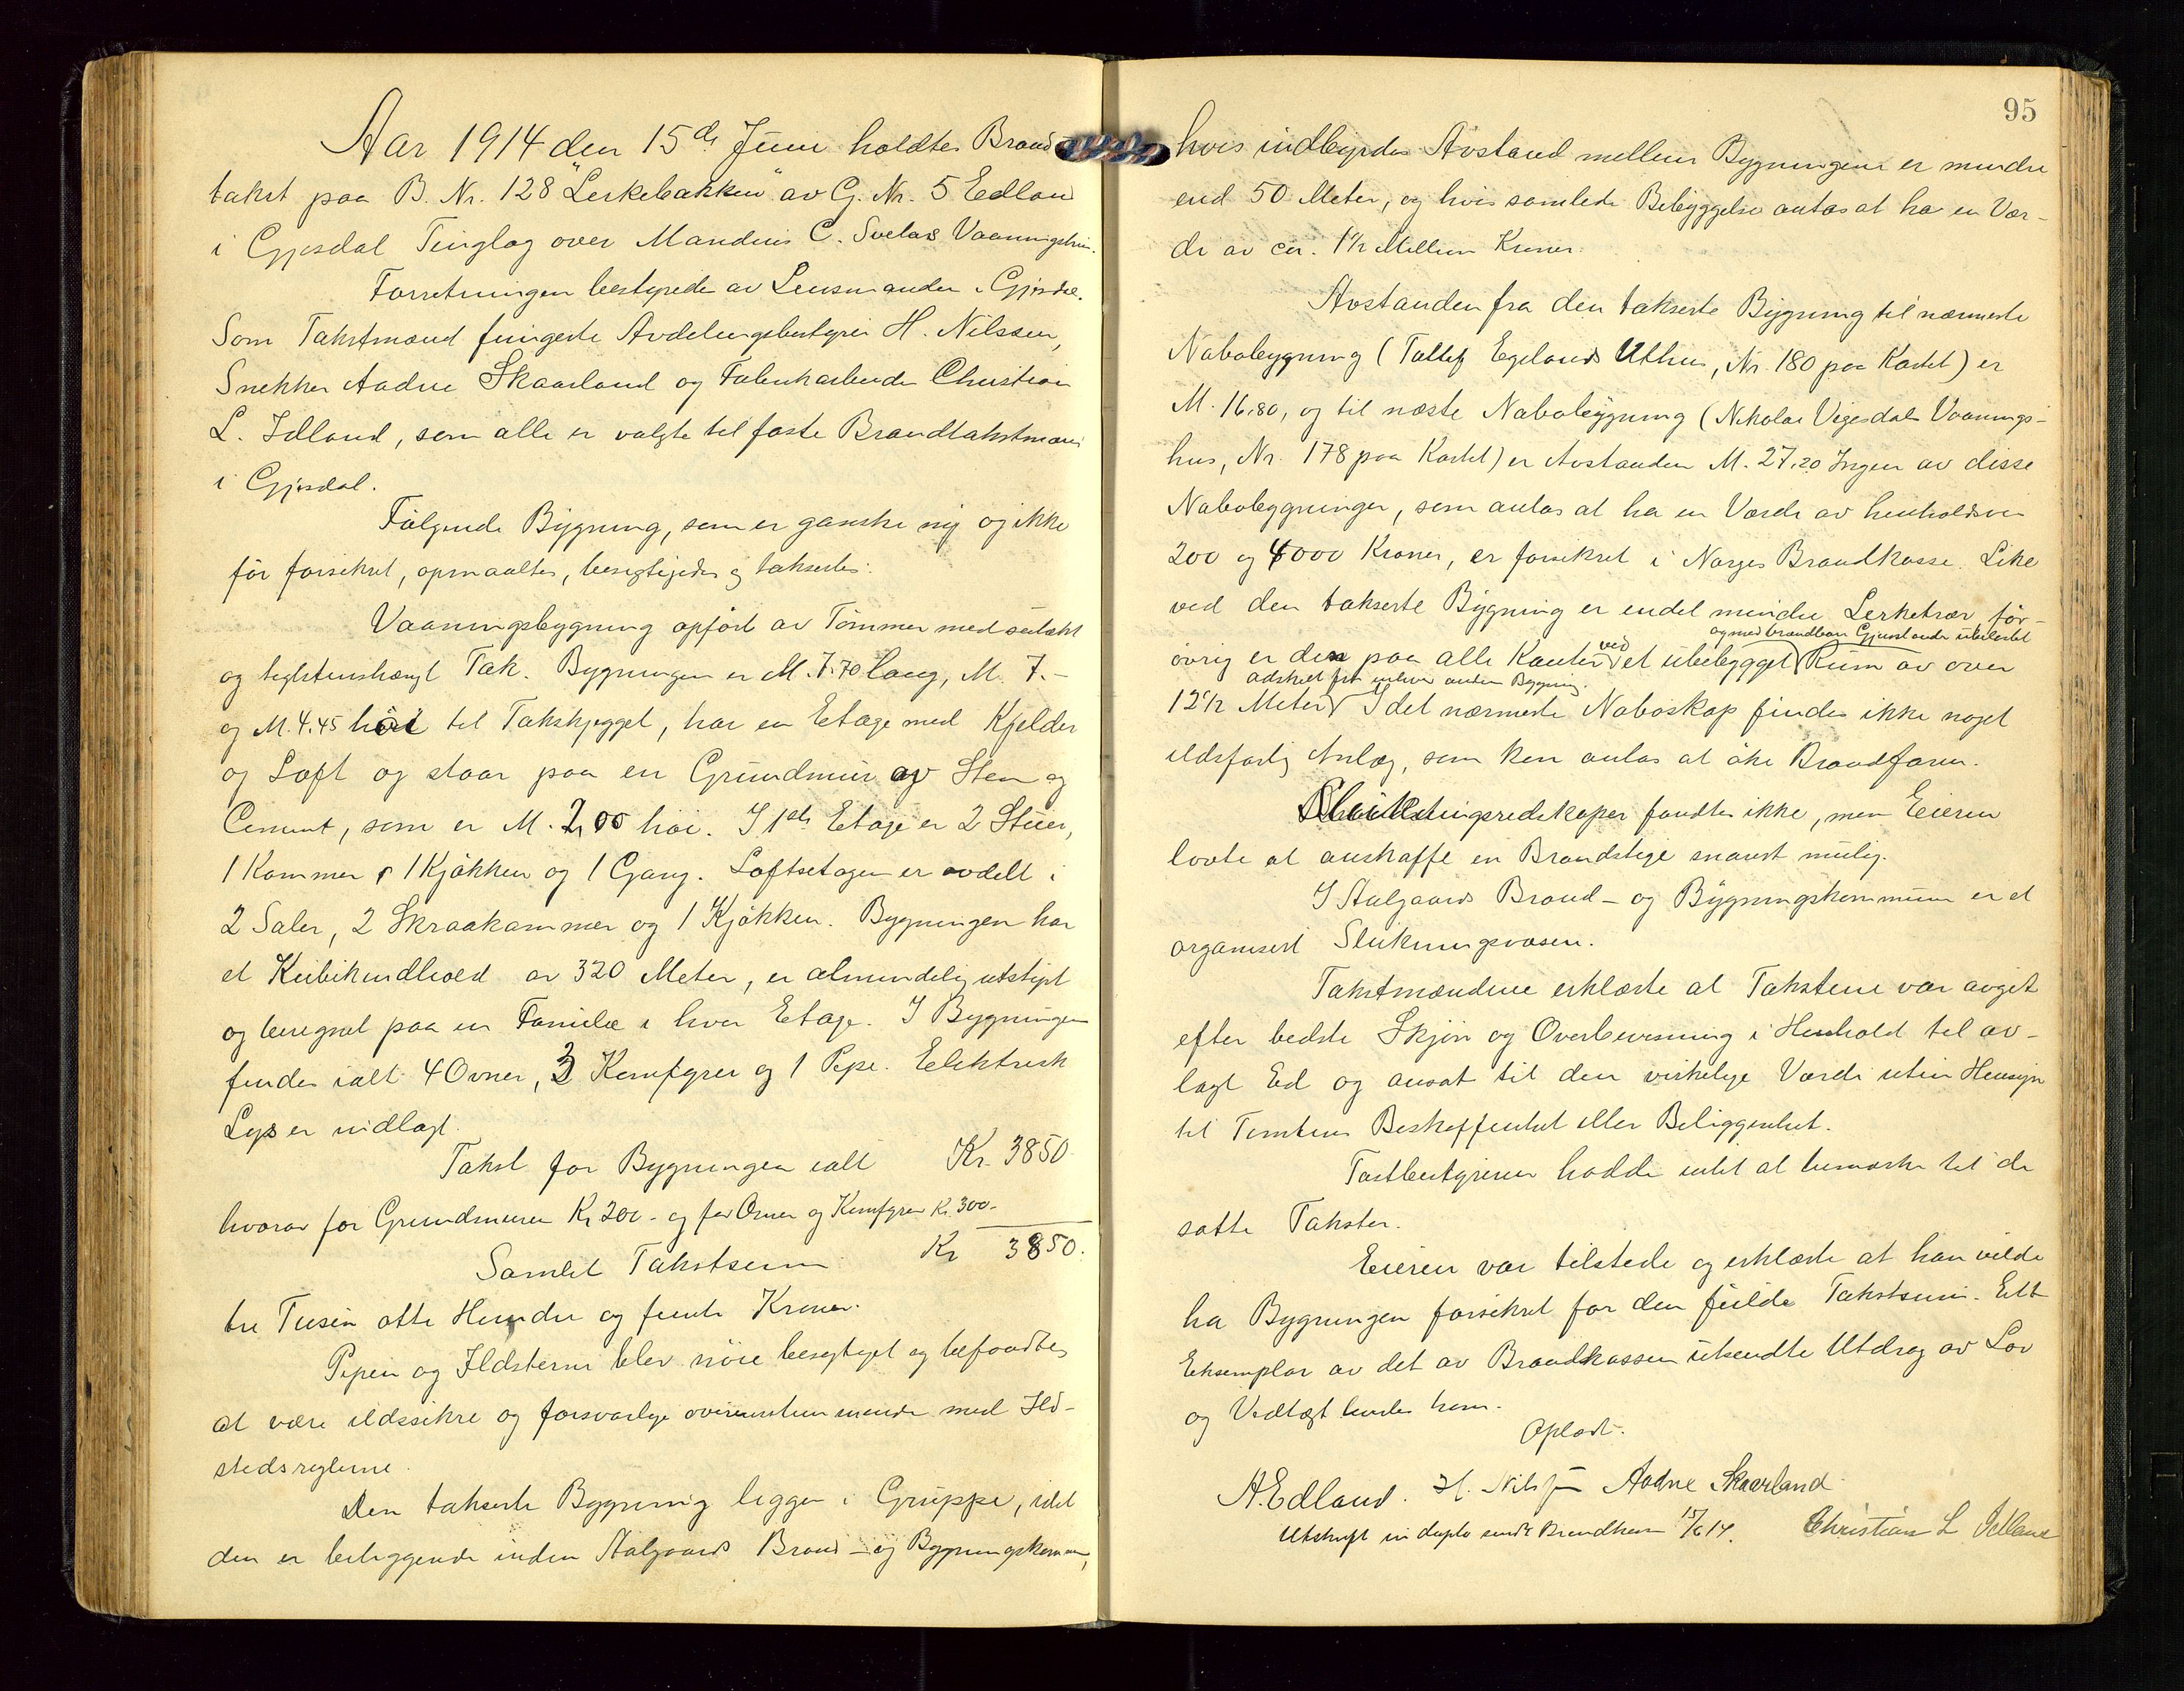 Aar 1914 den 15de Juni holdtes Brand-
takst paa B. Nr. 128 "Lerkebakken" av G. Nr. 5 Edland
i Gjesdal Tinglag over Mandius C. Svelas Vaaningshus.
Forretningen bestyredes av Lensmanden i Gjesdal.
Som Takstmænd fungerte Avdelingsbestyrer H. Nilssen,
Snekker Aadne Skaarland og Fabrikarbeider Christian
L. Idland, som alle er valgte til faste Brandtakstmænd
i Gjesdal.
Følgende Bygning, som er ganske ny og ikke
før forsikret, opmaaltes, besigtigedes og taksertes:
Vaaningsbygning opført av Tømmer med
og teglstenshængt Tak. Bygningen er M. 7.70 lang, M. 7.-
og M. 4.45 høi til Takskjegget, har en Etage med Kjelder
og Loft og staar paa en Grundmur av Sten og
Cement, som er M. 2,00 høi. I 1ste Etage er 2 Stuer,
1 Kammer, 1 Kjøkken og 1 Gang. Loftsetagen er avdelt i
2 Saler, 2 Skraakammer og 1 Kjøkken. Bygningen har
et Kubikindhold av 320 Meter, er almindelig utstyrt
og beregnet paa en Familie i hver Etage. I Bygningen
findes ialt 4 Ovner, 2 Komfyrer og 1 Pipe. Elektrisk
Lys er indlagt.
Takst for Bygningen ialt Kr. 3850
hvorav for Grundmuren Kr 200.- og for Ovner og Komfyrer Kr. 300.-
Samlet Takstsum Kr 3850.
tre Tusin otte Hundre og femti Kroner.
Pipen og Ildsterne blev nøie besigtiget og befandtes
at være ildssikre og forsvarlige overensstemmende med Ild-
stedsreglerne.
Den takserte Bygning ligger i Gruppe, idet
den er beliggende inden Aalgaards Brand- og Bygningskommune,
95
hvis indbyrdes Avstand mellem Bygningene er mindre
end 50 Meter, og hvis samlede Bebyggelse antas at ha en Vær-
di av ca. 1½ Million Kroner.
Avstanden fra den takserte Bygning til nærmeste
Nabobygning (Tollef Egelands Uthus, Nr. 180 paa Kartet) er
M. 16,80, og til næste Nabobygning (Nikolai Vigesdals Vaanings-
hus, Nr. 178 paa Kartet) er Avstanden M. 27,20. Ingen av disse
Nabobygninger, som antas at ha en Værdi av henholdsvis
200 og 4000 Kroner, er forsikret i Norges Brandkasse. Like
ved den takserte Bygning er endel mindre Lerketrær, for-
og med brændbare Gjenstande ubelastet
øvrig er den paa alle Kanter ved et ubebygget Rum av over
adskilt fra enhver anden Bygning.
12½ Meter. I det nærmeste Naboskap findes ikke noget
ildsfarlig Anlæg, som kan antas at øke Brandfaren.
Slukningsredskaper fandtes ikke, men Eieren
lovte at anskaffe en Brandstige snarest mulig.
I Aalgaards Brand- og Bygningskommune er et
organisert Slukningsvæsen.
Takstmændene erklærte at Takstene var avgit
efter bedste Skjøn og Overbevisning i Henhold til av-
lagt Ed og ansat til den virkelige Værdi uten Hensyn
til Tomtens Beskaffenhet eller Beliggenhet.
Tastbestyreren hadde intet at bemærke til de
satte Takster.
Eieren var tilstede og erklærte at han vilde
ha Bygningen forsikret for den fulde Takstsum. Ett
Eksemplar av det av Brandkassen utsendte Utdrag av Lov
og Vedtægt levdes ham.
Oplæst.
A. Edland. H. Nilssen Aadne Skaarland
Utskrift in duplo sendt Brandkassen 15/6 14. Christian L Idland